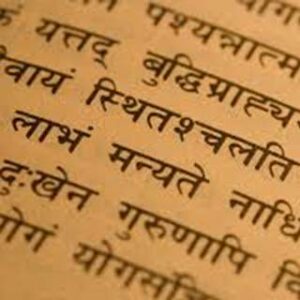 पश्यन्नात्म
कं यत्तद् बुद्धिग्राह्य
वैवायं स्थितश्चलति
लाभं मन्यते नाधि
दुःखेन गुरुणापि वि
योगं